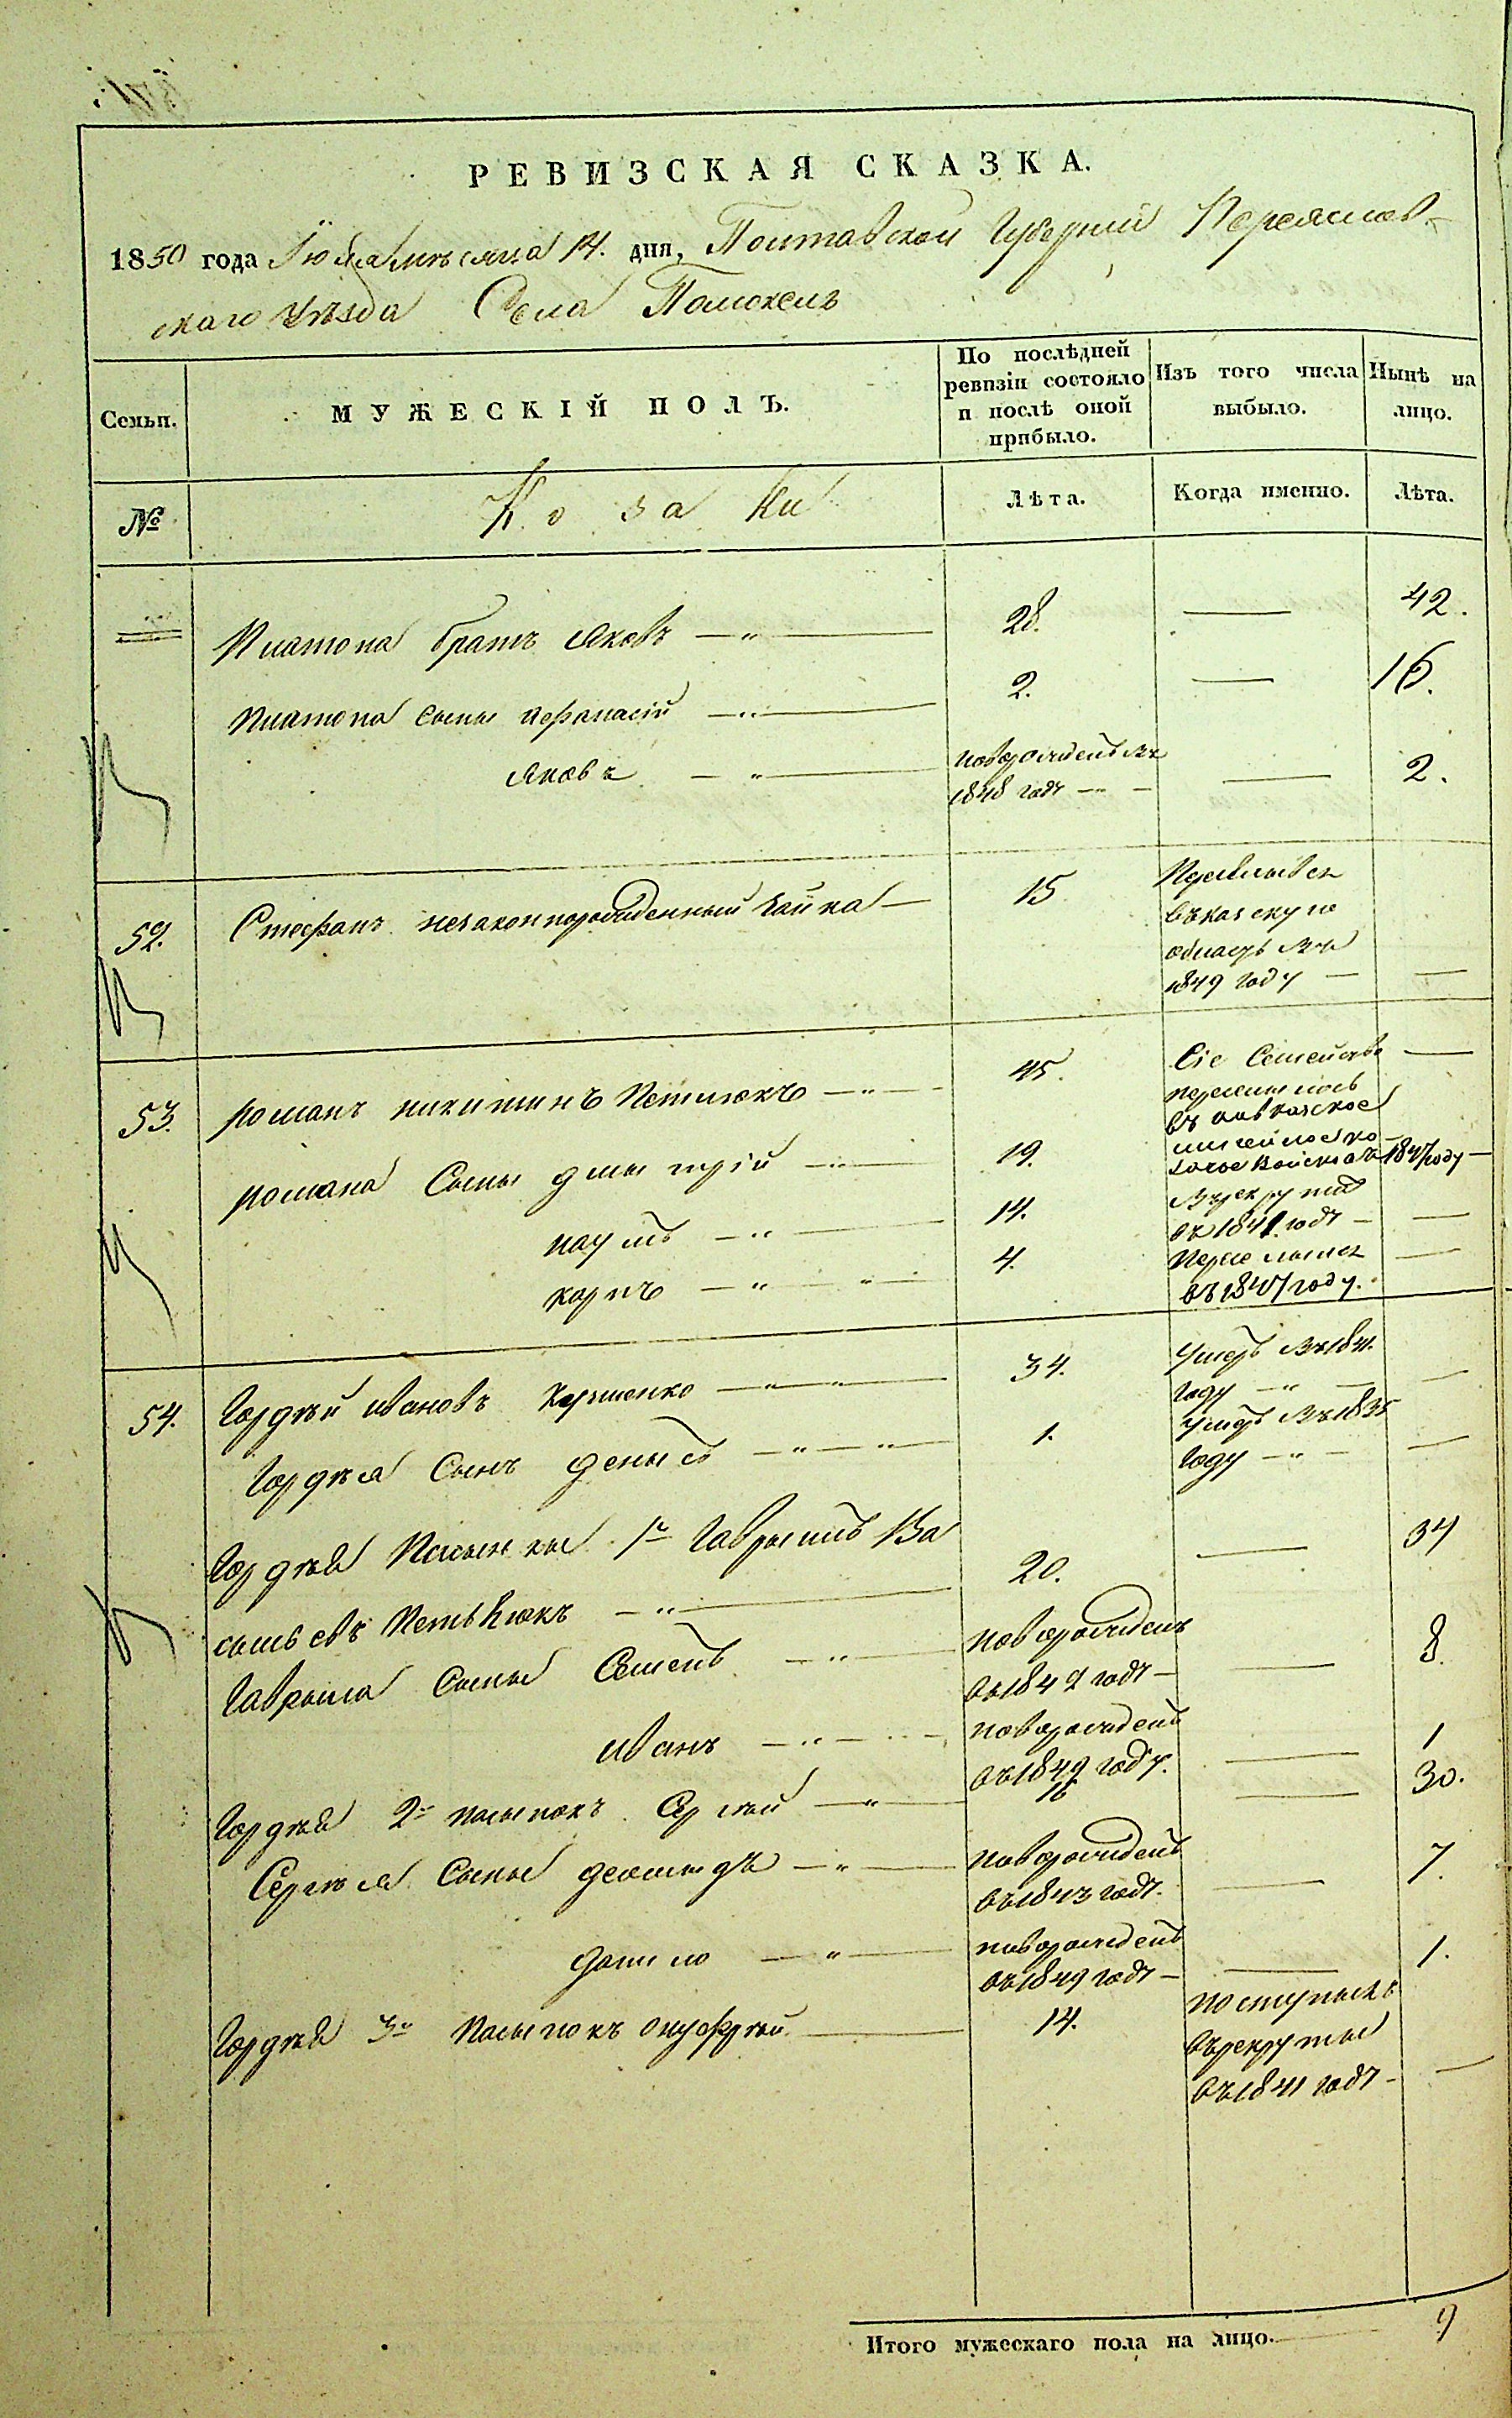 РЕВИЗСКАЯ СКАЗКА.
1850 года Іюля мѣсяца 14. дня, Полтавской Губерніи Переяслав-
скаго уѣзда Села Помоклъ
Семьи.
МУЖЕСКІЙ ПОЛЪ.
По послѣдней ревизіи состояло и послѣ оной прибыло.
Изъ того числа выбыло.
Нынѣ на лицо.
№
Козаки
Лѣта.
Когда именно.
Лѣта.
Платона братъ Яковъ 28. 42.
Платона сыны Афанасій 2. 16.
Яковъ новорожденъ въ 1848 годѣ 2.
52. Стефанъ незаконнорожденный Чайка 15
въ 1849 году
53. Романъ Никитинъ Петлюкъ 45. Сіе Семейство
переселилось
въ Кавказское
линейное ко-
зачое Войско въ 1847 году
Романа Сыны Дмытрій 19.
Наумъ 14. въ рекруты
въ 1841 годѣ
Карпъ 4.
въ 1847 году.
54. Гордѣй Ивановъ 34. умеръ въ 1841.
году
Гордѣя Сынъ Денысъ 1. умеръ въ 1835
году
Гордѣя Пасынки 1й Гаврыилъ Ва
сыльевъ 20. 34
Гаврыила Сыны Семенъ новорожденъ
въ 1842 годѣ 8.
Иванъ новорожденъ
въ 1849 году. 1
Гордѣя 2й пасынокъ Сергѣй 16 30.
Сергѣя Сыны Деомидъ новорожденъ
въ 1843 годѣ. 7.
Данило новорожденъ
въ 1849 годѣ 1.
Гордѣя 3й Пасынокъ Онуфрій 14. поступилъ
въ рекруты
въ 1841 годѣ
Итого мужескаго пола на лицо. 9